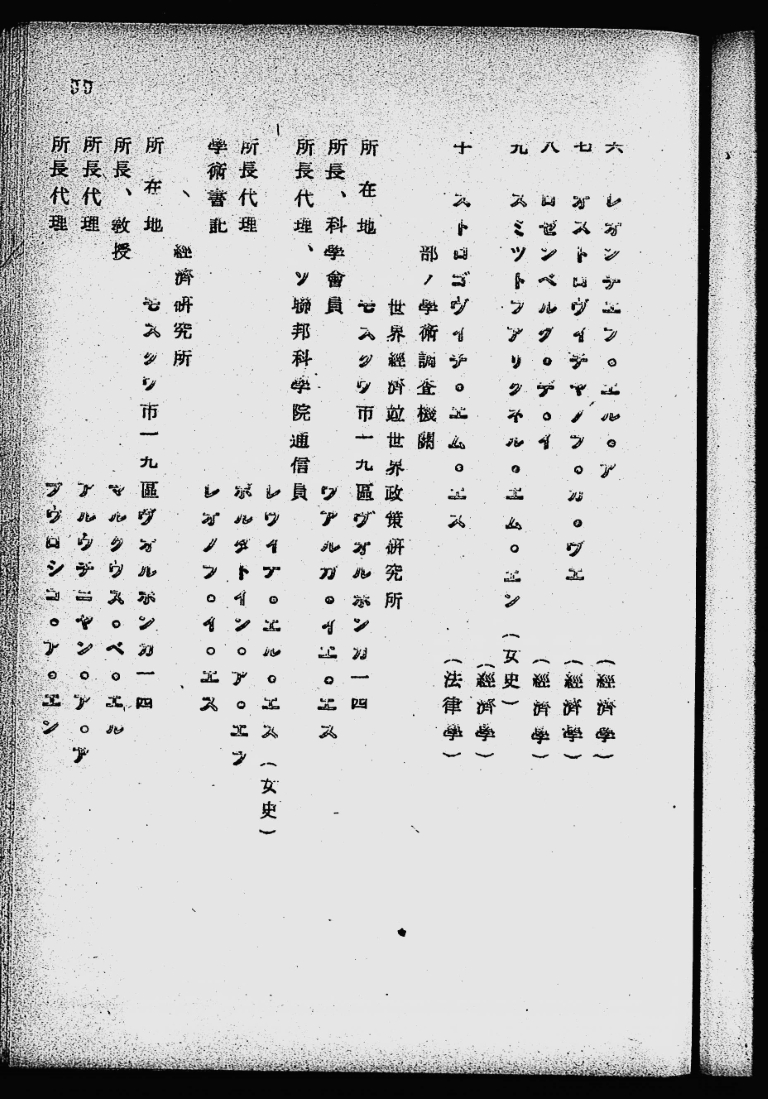 六 レオンチエフ。エル。ア (經濟學)
七 オストロヴイチヤノフ。カ。ヴエ (經濟學)
八 ロゼンベルグ。デ。イ (經濟學)
九 スミツトフアリクネル。エム。エン (女史)
(經濟學)
十 ストロゴヴイチ。エム。エス (法律學)
部ノ學術調査機關
世界經濟竝世界政策研究所
所在地 モスクワ市一九區ヴオルホンカ一四
所長、科學會員 ヴアルガ。イエ。エス
所長代理、ソ聯邦科學院通信員
レヴイナ。エル。エス(女史)
所長代理 ボルダトイン。ア。エフ
學術書記 レオノフ。イ。エス
、 經濟研究所
所在地 モスクワ市一九區ヴオルホンカ一四
所長、教授 マルクウス。ベ。エル
所長代理 アルウチニヤン。ア。ア
所長代理 ブウロシコ。ア。エン